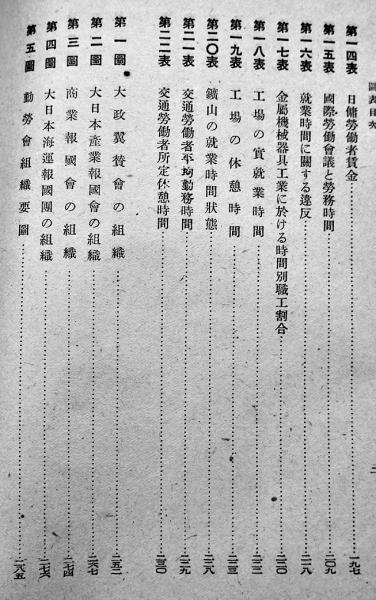 圖表目次
第一四表 日傭勞働者賃金……一九七
第一五表 國際勞働會議と勞務時間……二〇九
第一六表 就業時間に關する違反……二一八
第一七表 金屬機械器具工業に於ける時間別職工割合……二二〇
第一八表 工場の實就業時間……二二二
第一九表 工場の休憩時間……二二三
第二〇表 鑛山の就業時間狀態……二二八
第二一表 交通勞働者平均勤務時間……二二九
第二二表 交通勞働者所定休憩時間……二三〇
第一圖 大政翼贊會の組織……二五二
第二圖 大日本產業報國會の組織……二六七
第三圖 商業報國會の組織……二七四
第四圖 大日本海運報國團の組織……二七六
第五圖 勤勞會組織要圖……二八五
二